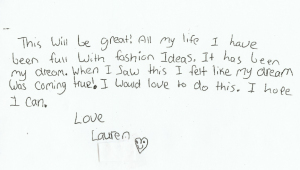 This Will be great! All my life I have
been full With fashion Ideas. It has been
my dream. When I Saw this I felt like my dream
Was Coming true! I Would love to do this. I hope
I Can.
Love
Lauren